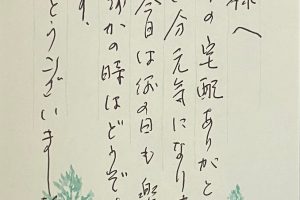 様へ
の宅配ありがと
分元気になりま
今日は何の日も楽
かの時はどうぞ
す。
とうございまし